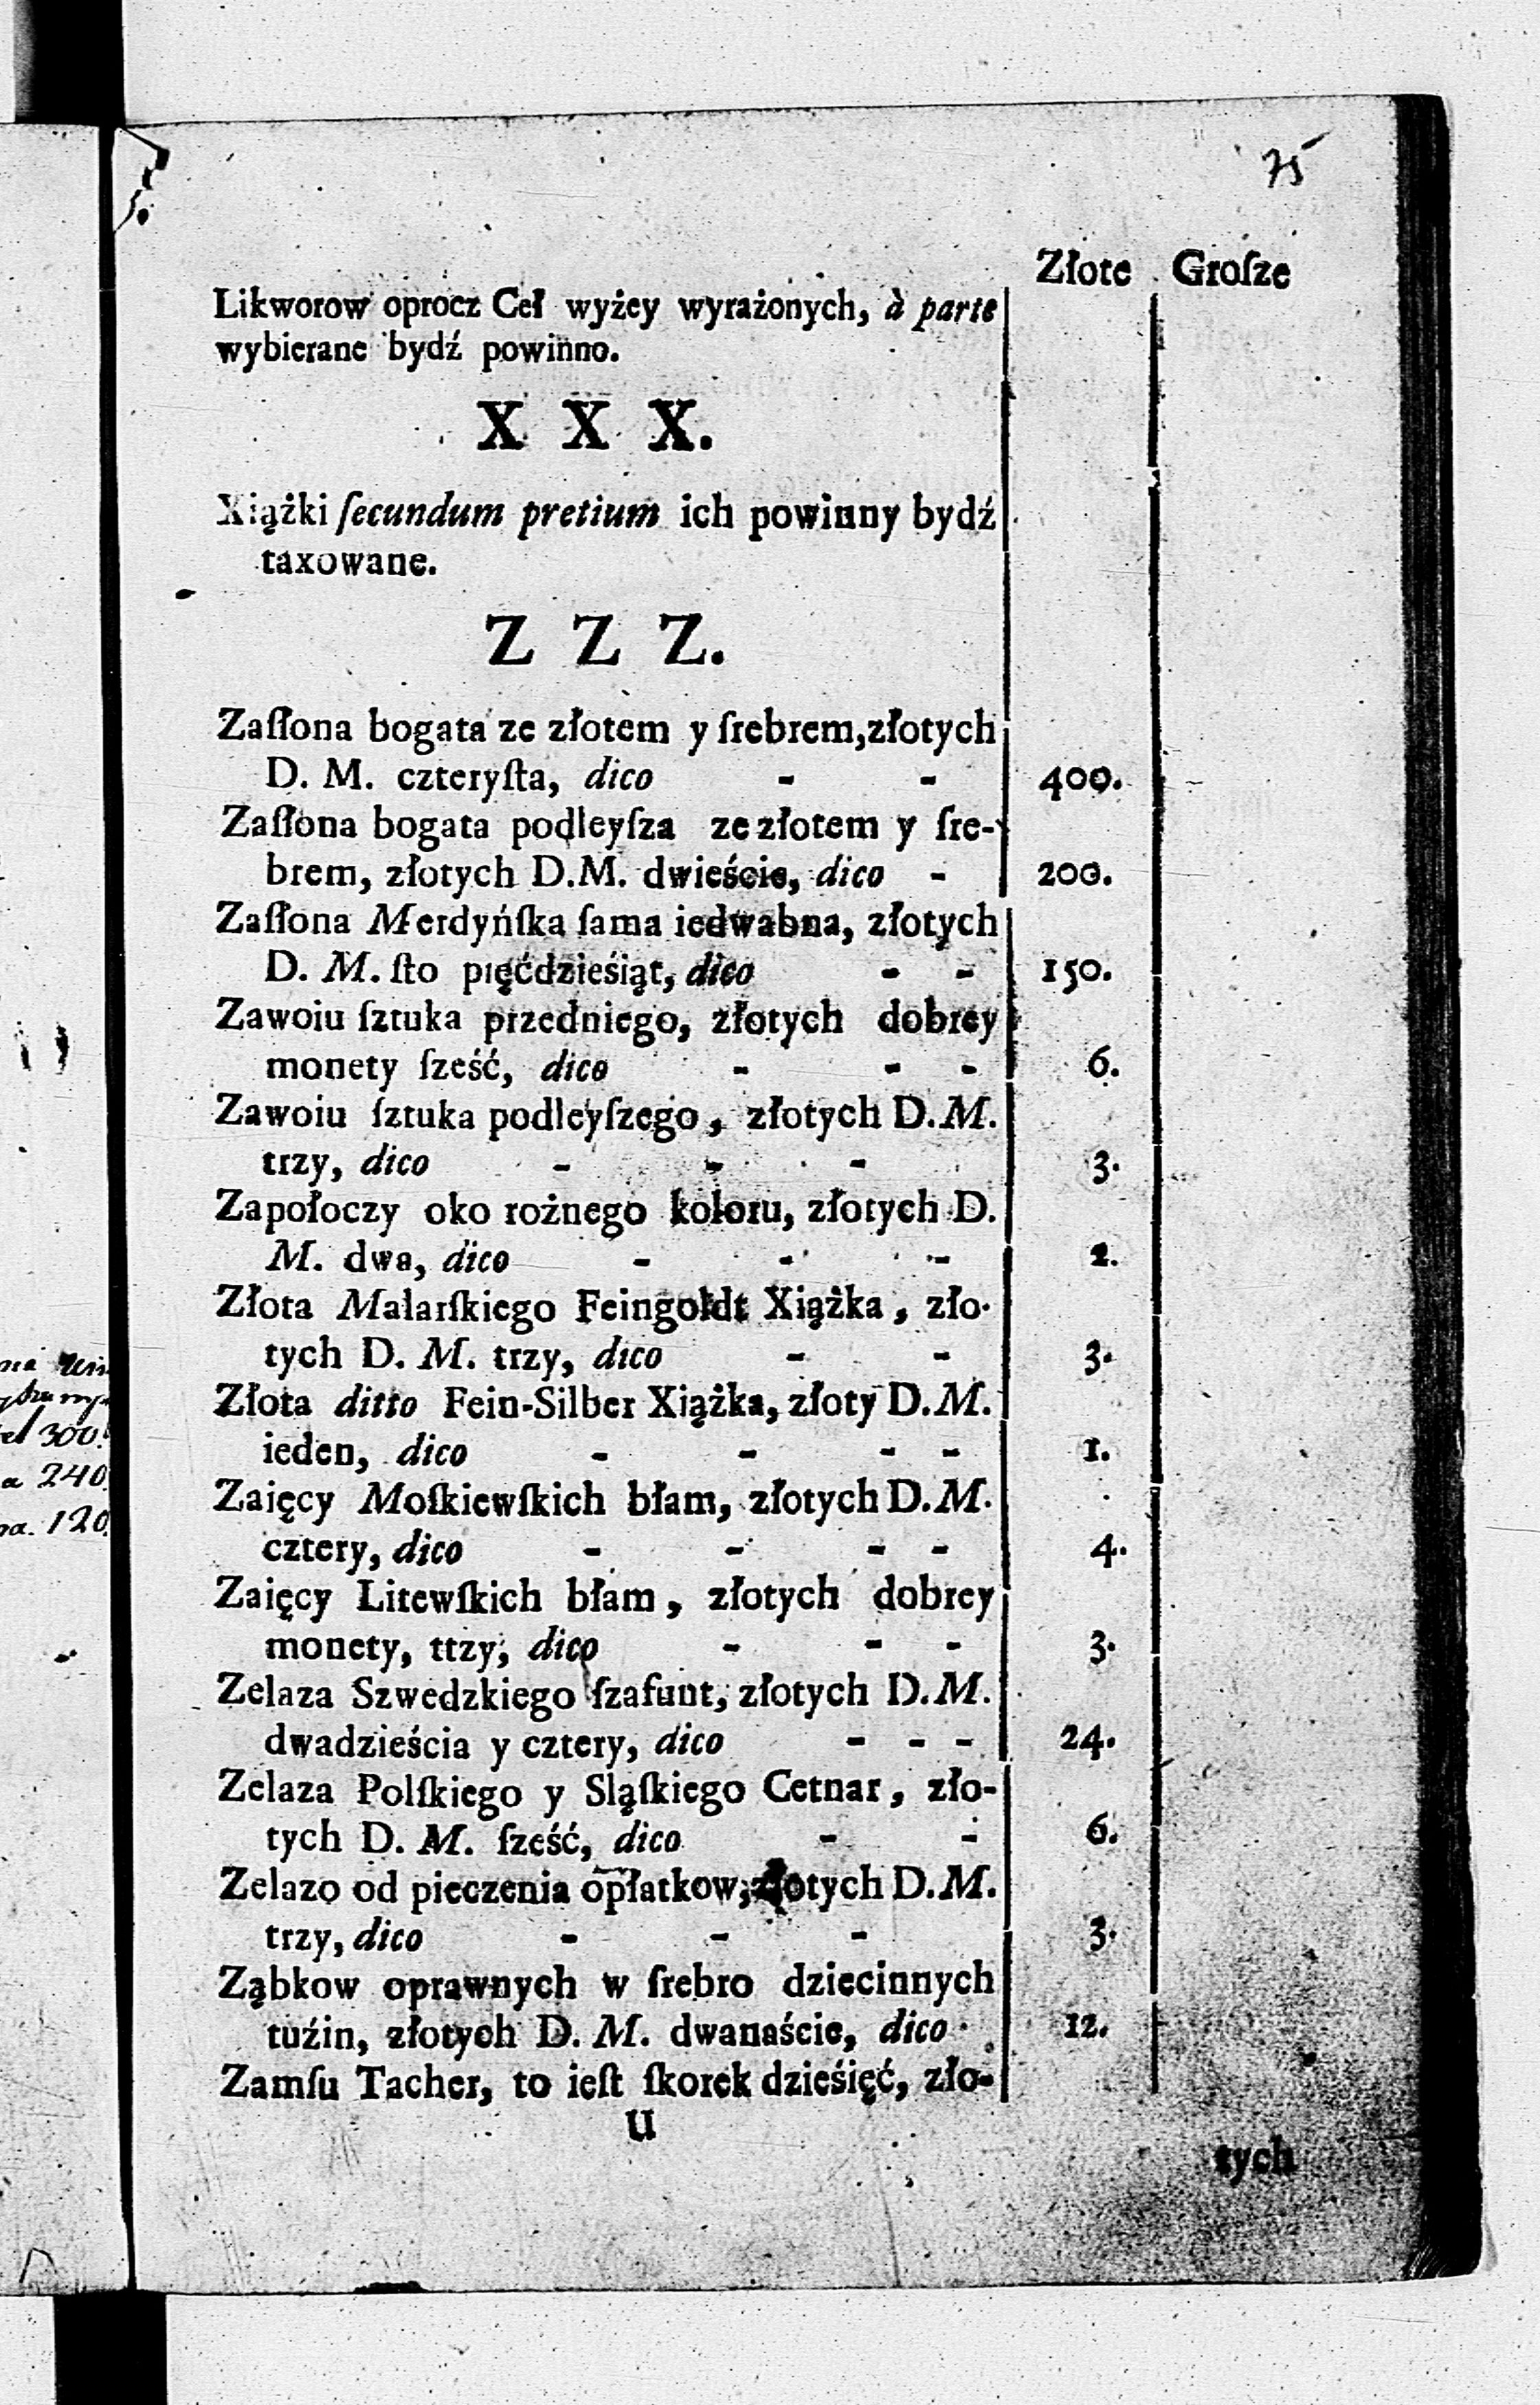 75
Złote Groſze
Likworow oprocz Ceł wyżey wyrażonych, à parte
wybierane bydź powinno.
X X X.
Xiążki ſecundum pretium ich powinny bydź
taxowane.
Z Z Z.
Zaſłona bogata ze złotem y ſrebrem, złotych
D. M. czteryſta, dico - - 400.
Zaſłona bogata podleyſza ze złotem y ſre-
brem, złotych D.M. dwieście, dico - 200.
Zaſłona Merdyńſka ſama iedwabna, złotych
D. M. ſto pięćdzieśiąt, dico - - 150.
Zawoiu ſztuka przedniego, złotych dobrey
monety ſześć, dico - - - 6.
Zawoiu ſztuka podleyſzego, złotych D.M.
trzy, dico - - - 3.
Zapołoczy oko rożnego koloru, złotych D.
M. dwa, dico - - - 2.
Złota Malarſkiego Feingoldt Xiążka, zło-
tych D. M. trzy, dico - - 3.
Złota ditto Fein-Silber Xiążka, złoty D.M.
ieden, dico - - - - 1.
Zaięcy Moſkiewſkich błam, złotych D.M.
cztery, dico - - - - 4.
Zaięcy Litewſkich błam, złotych dobrey
monety, ttzy, dico - - - 3.
Zelaza Szwedzkiego ſzafunt, złotych D.M.
dwadzieścia y cztery, dico - - - 24.
Zelaza Polſkiego y Sląſkiego Cetnar, zło-
tych D. M. ſześć, dico - - 6.
Zelazo od pieczenia opłatkow, złotych D.M.
trzy, dico - - - 3.
Ząbkow oprawnych w ſrebro dziecinnych
tuźin, złotych D. M. dwanaście, dico 12.
Zamſu Tacher, to ieſt ſkorek dzieśięć, zło-
U
tych
300.
a 240.
120.